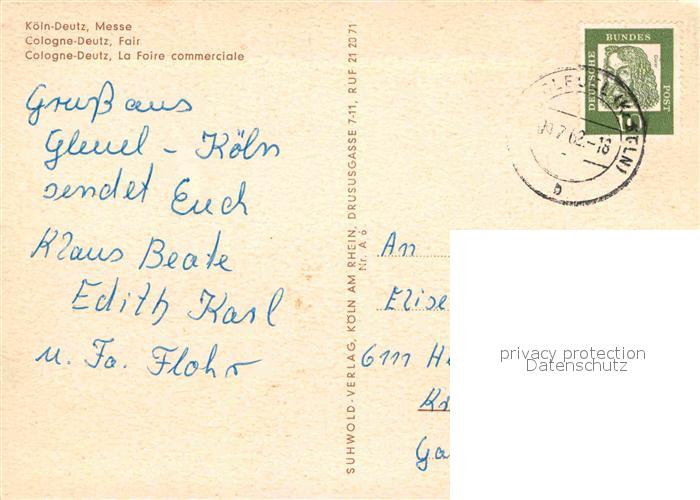 Köln-Deutz, Messe
Cologne-Deutz, Fair
Cologne-Deutz, La Foire commerciale
Gruß aus
Gleuel - Köln
sendet Euch
Klaus Beate
Edith Karl
u. Fa. Flohr
SUHWOLD-VERLAG, KÖLN AM RHEIN, DRUSUSGASSE 7-11, RUF 21 20 71
Nr. A 6
DEUTSCHE BUNDES POST
7.62.-18
b
An
Elise
6111 He
Kr
Ga
privacy protection
Datenschutz